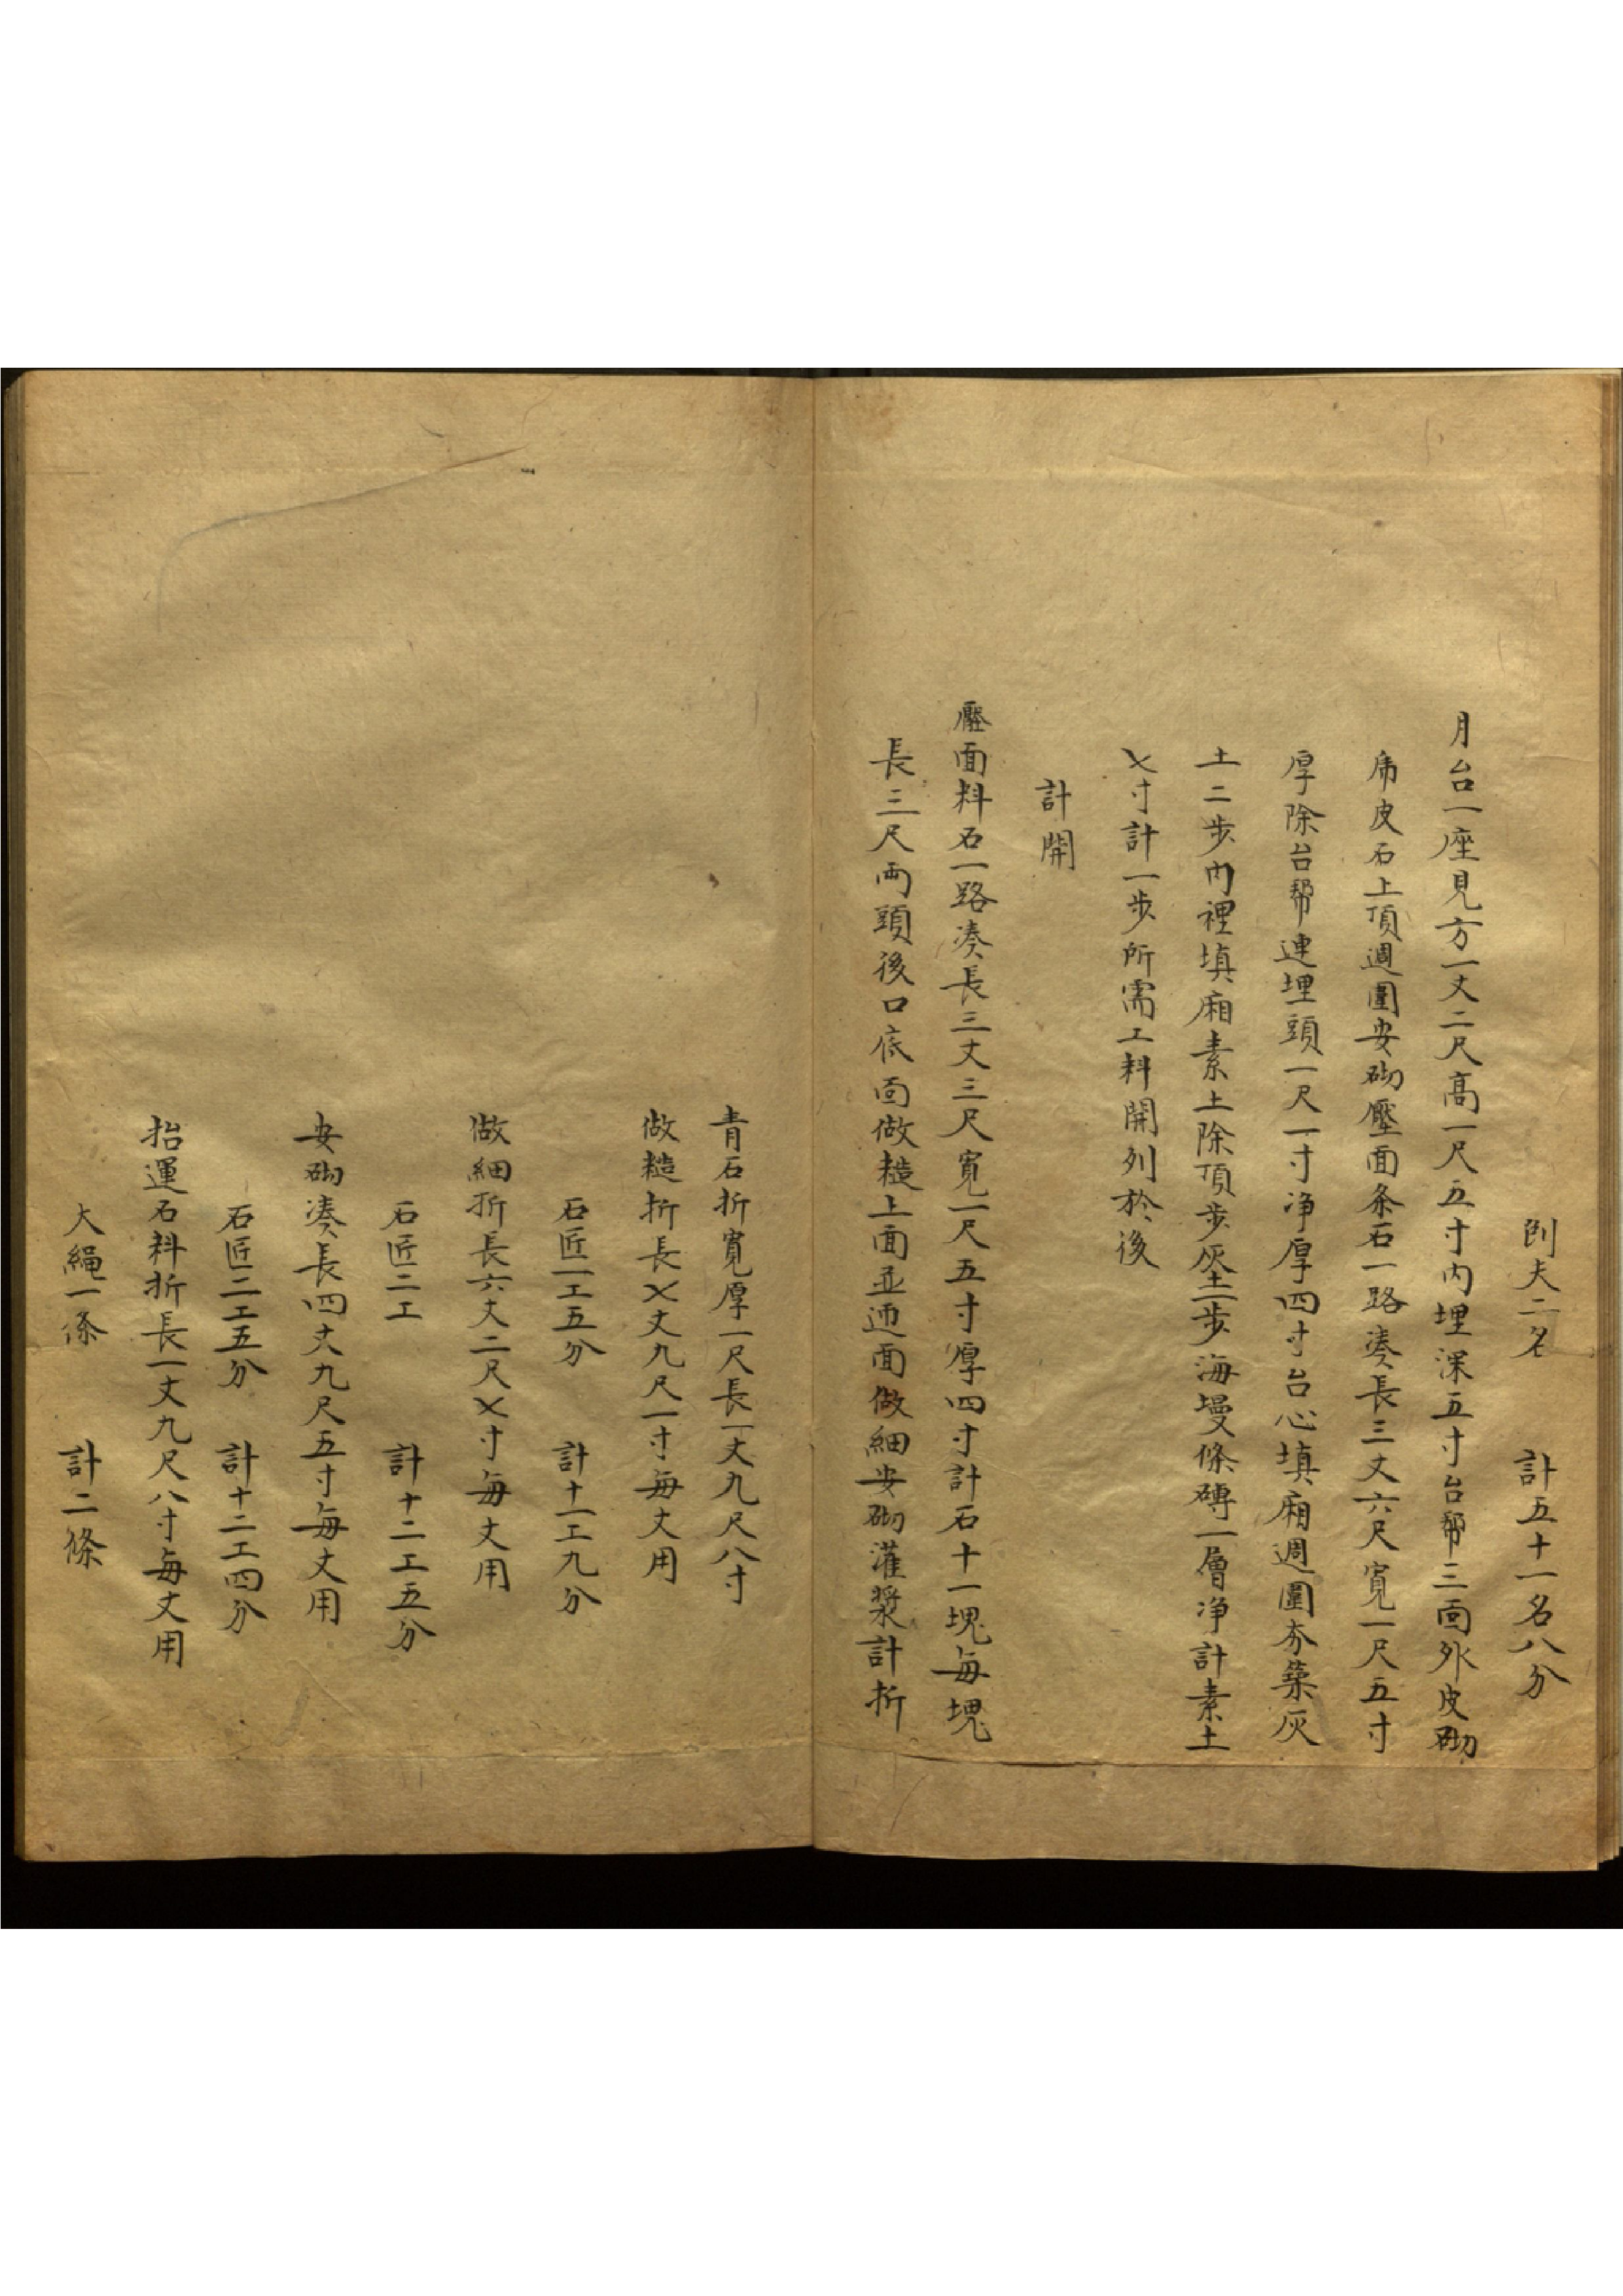 刨夫二名 計五十一名八分
月台一座見方一丈二尺高一尺五寸内埋深五寸台幫三面外皮砌
虎皮石上頂週圍安砌壓面条石一路湊長三丈六尺寬一尺五寸
厚除台幫連埋頭一尺一寸净厚四寸台心填廂週圍夯築灰
土二步内裡填廂素土除頂步灰土一步海墁條磚一層净計素土
乄寸計一步所需工料開列於後
計開
壓面料石一路湊長三丈三尺寬一尺五寸厚四寸計石十一塊每塊
長三尺两頭後口底面做糙上面並迎面做細安砌灌漿計折
青石折寬厚一尺長一丈九尺八寸
做糙折長乄丈九尺一寸每丈用
石匠一工五分 計十一工九分
做細折長六丈二尺乄寸每丈用
石匠二工 計十二工五分
安砌湊長四丈九尺五寸每丈用
石匠二工五分 計十二工四分
抬運石料折長一丈九尺八寸每丈用
大繩一條 計二條